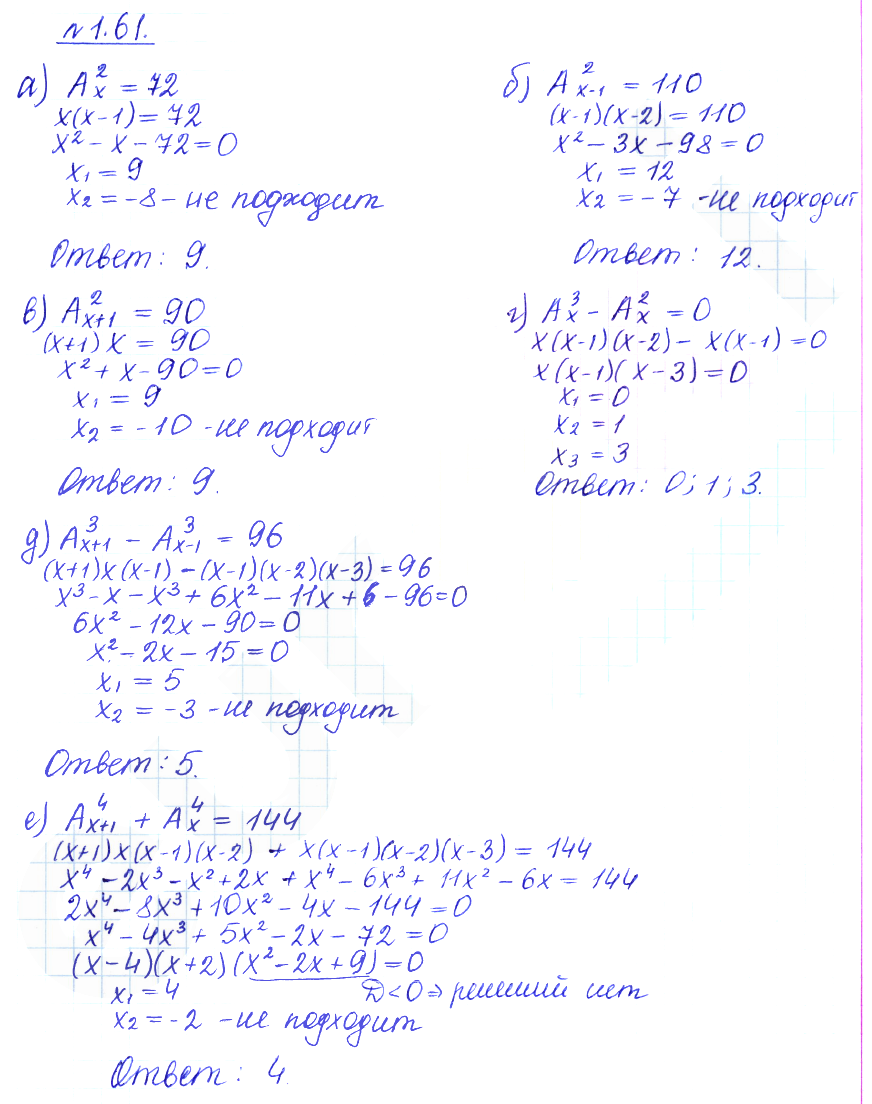 n 1.61.
а) A²ₓ = 72
x(x-1) = 72
x² - x - 72 = 0
x₁ = 9
x₂ = -8 - не подходит
Ответ: 9.
б) A²ₓ₋₁ = 110
(x-1)(x-2) = 110
x² - 3x - 98 = 0
x₁ = 12
x₂ = -7 - не подходит
Ответ: 12.
в) A²ₓ₊₁ = 90
(x+1)x = 90
x² + x - 90 = 0
x₁ = 9
x₂ = -10 - не подходит
Ответ: 9.
г) A³ₓ - A²ₓ = 0
x(x-1)(x-2) - x(x-1) = 0
x(x-1)(x-3) = 0
x₁ = 0
x₂ = 1
x₃ = 3
Ответ: 0; 1; 3.
д) A³ₓ₊₁ - A³ₓ₋₁ = 96
(x+1)x(x-1) - (x-1)(x-2)(x-3) = 96
x³ - x - x³ + 6x² - 11x + 6 - 96 = 0
6x² - 12x - 90 = 0
x² - 2x - 15 = 0
x₁ = 5
x₂ = -3 - не подходит
Ответ: 5.
е) A⁴ₓ₊₁ + A⁴ₓ = 144
(x+1)x(x-1)(x-2) + x(x-1)(x-2)(x-3) = 144
x⁴ - 2x³ - x² + 2x + x⁴ - 6x³ + 11x² - 6x = 144
2x⁴ - 8x³ + 10x² - 4x - 144 = 0
x⁴ - 4x³ + 5x² - 2x - 72 = 0
(x-4)(x+2)(x² - 2x + 9) = 0
x₁ = 4 D < 0 ⇒ решений нет
x₂ = -2 - не подходит
Ответ: 4